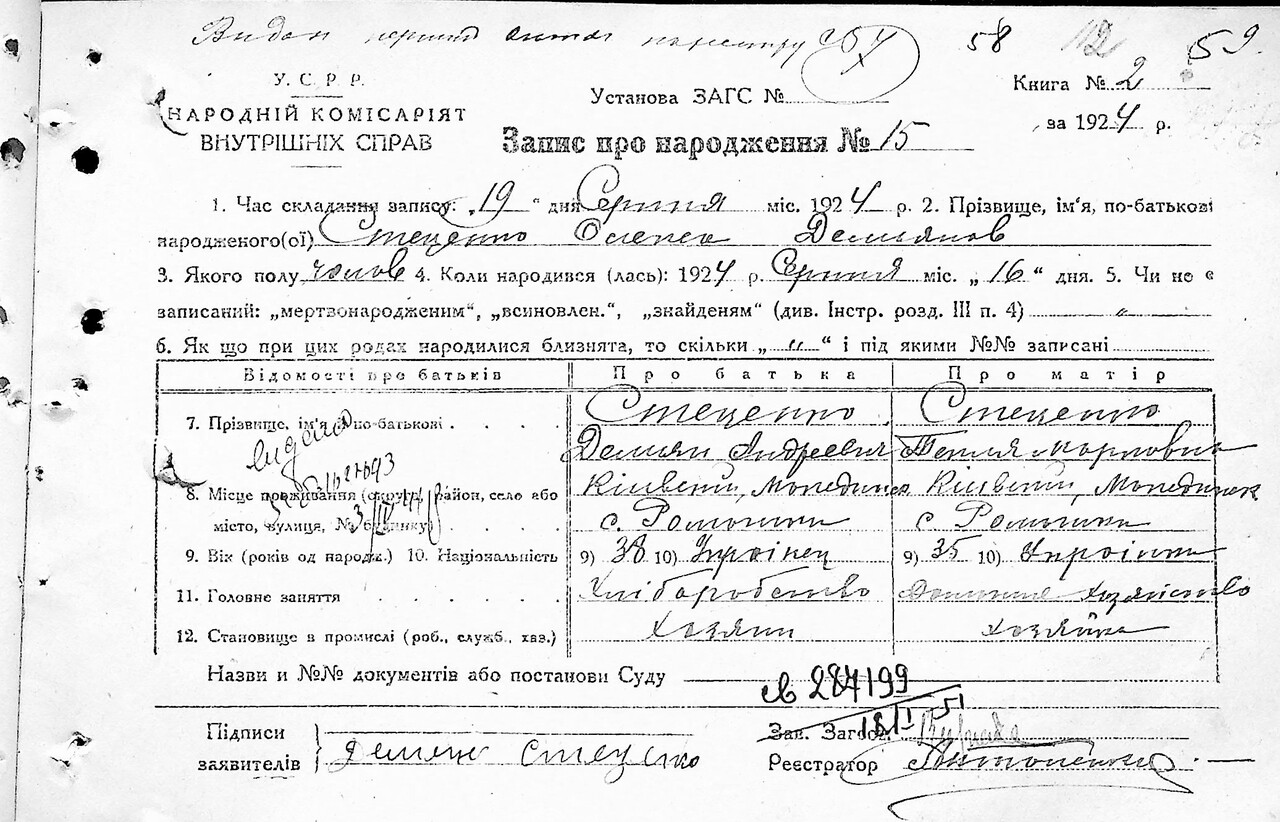 Видан перший витяг по реєстру 58 112 59
У. С. Р. Р.
НАРОДНІЙ КОМІСАРІЯТ
ВНУТРІШНІХ СПРАВ
Установа ЗАГС №
Книга № 2
за 1924 р.
Запис про народження № 15
1. Час складання запису: „19“ дня Серпня міс. 1924 р. 2. Прізвище, ім'я, по-батькові
народженого(ої) Стеценко Олекса Демьянов
3. Якого полу чолов 4. Коли народився (лась): 1924 р. Серпня міс. „16“ дня. 5. Чи не є
записаний: „мертвонародженим“, „всиновлен.“, „знайденям“ (див. Інстр. розд. III п. 4) „
6. Як що при цих родах народилися близнята, то скільки „ „ “ і під якими №№ записані
Відомості про батьків Про батька Про матір
7. Прізвище, ім'я по-батькові . . . . . Стеценко Стеценко
Демьян Андреевич Карповна
8. Місце проживання (округа, район, село або Київский, Київский,
місто, вулиця, № будинку) с. с.
9. Вік (років од народж.) 10. Національність 9) 38 10) Украінец 9) 35 10) Украінка
11. Головне заняття . . . . . . Хліборобство Домашнє Хозяйство
12. Становище в промислі (роб., служб., хаз.) Хозяин Хозяйка
Назви и №№ документів або постанови Суду
св 287199
18/I 51
Підписи
заявителів Демьян Стеценко
Зав. Загсом
Реєстратор